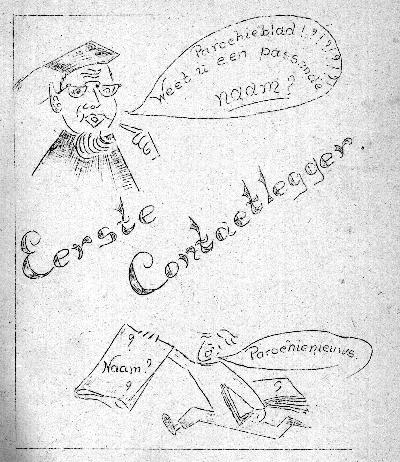 Parochieblad!?!?!?!?!
Weet U een passende
naam?
Eerste
Contactlegger.
?
Naam?
?
Parochienieuws
?